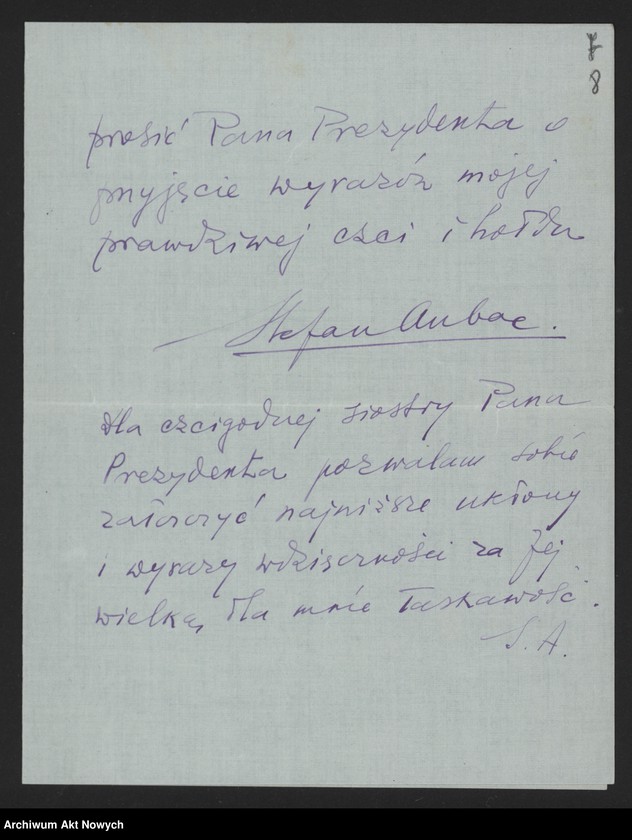 7
8
prosić Pana Prezydenta o
przyjęcie wyrazów mojej
prawdziwej czci i hołdu
Stefan Aubac.
Dla czcigodnej siostry Pana
Prezydenta pozwalam sobie
załączyć najniższe ukłony
i wyrazy wdzięczności za Jej
wielką dla mnie łaskawość.
S. A.
Archiwum Akt Nowych